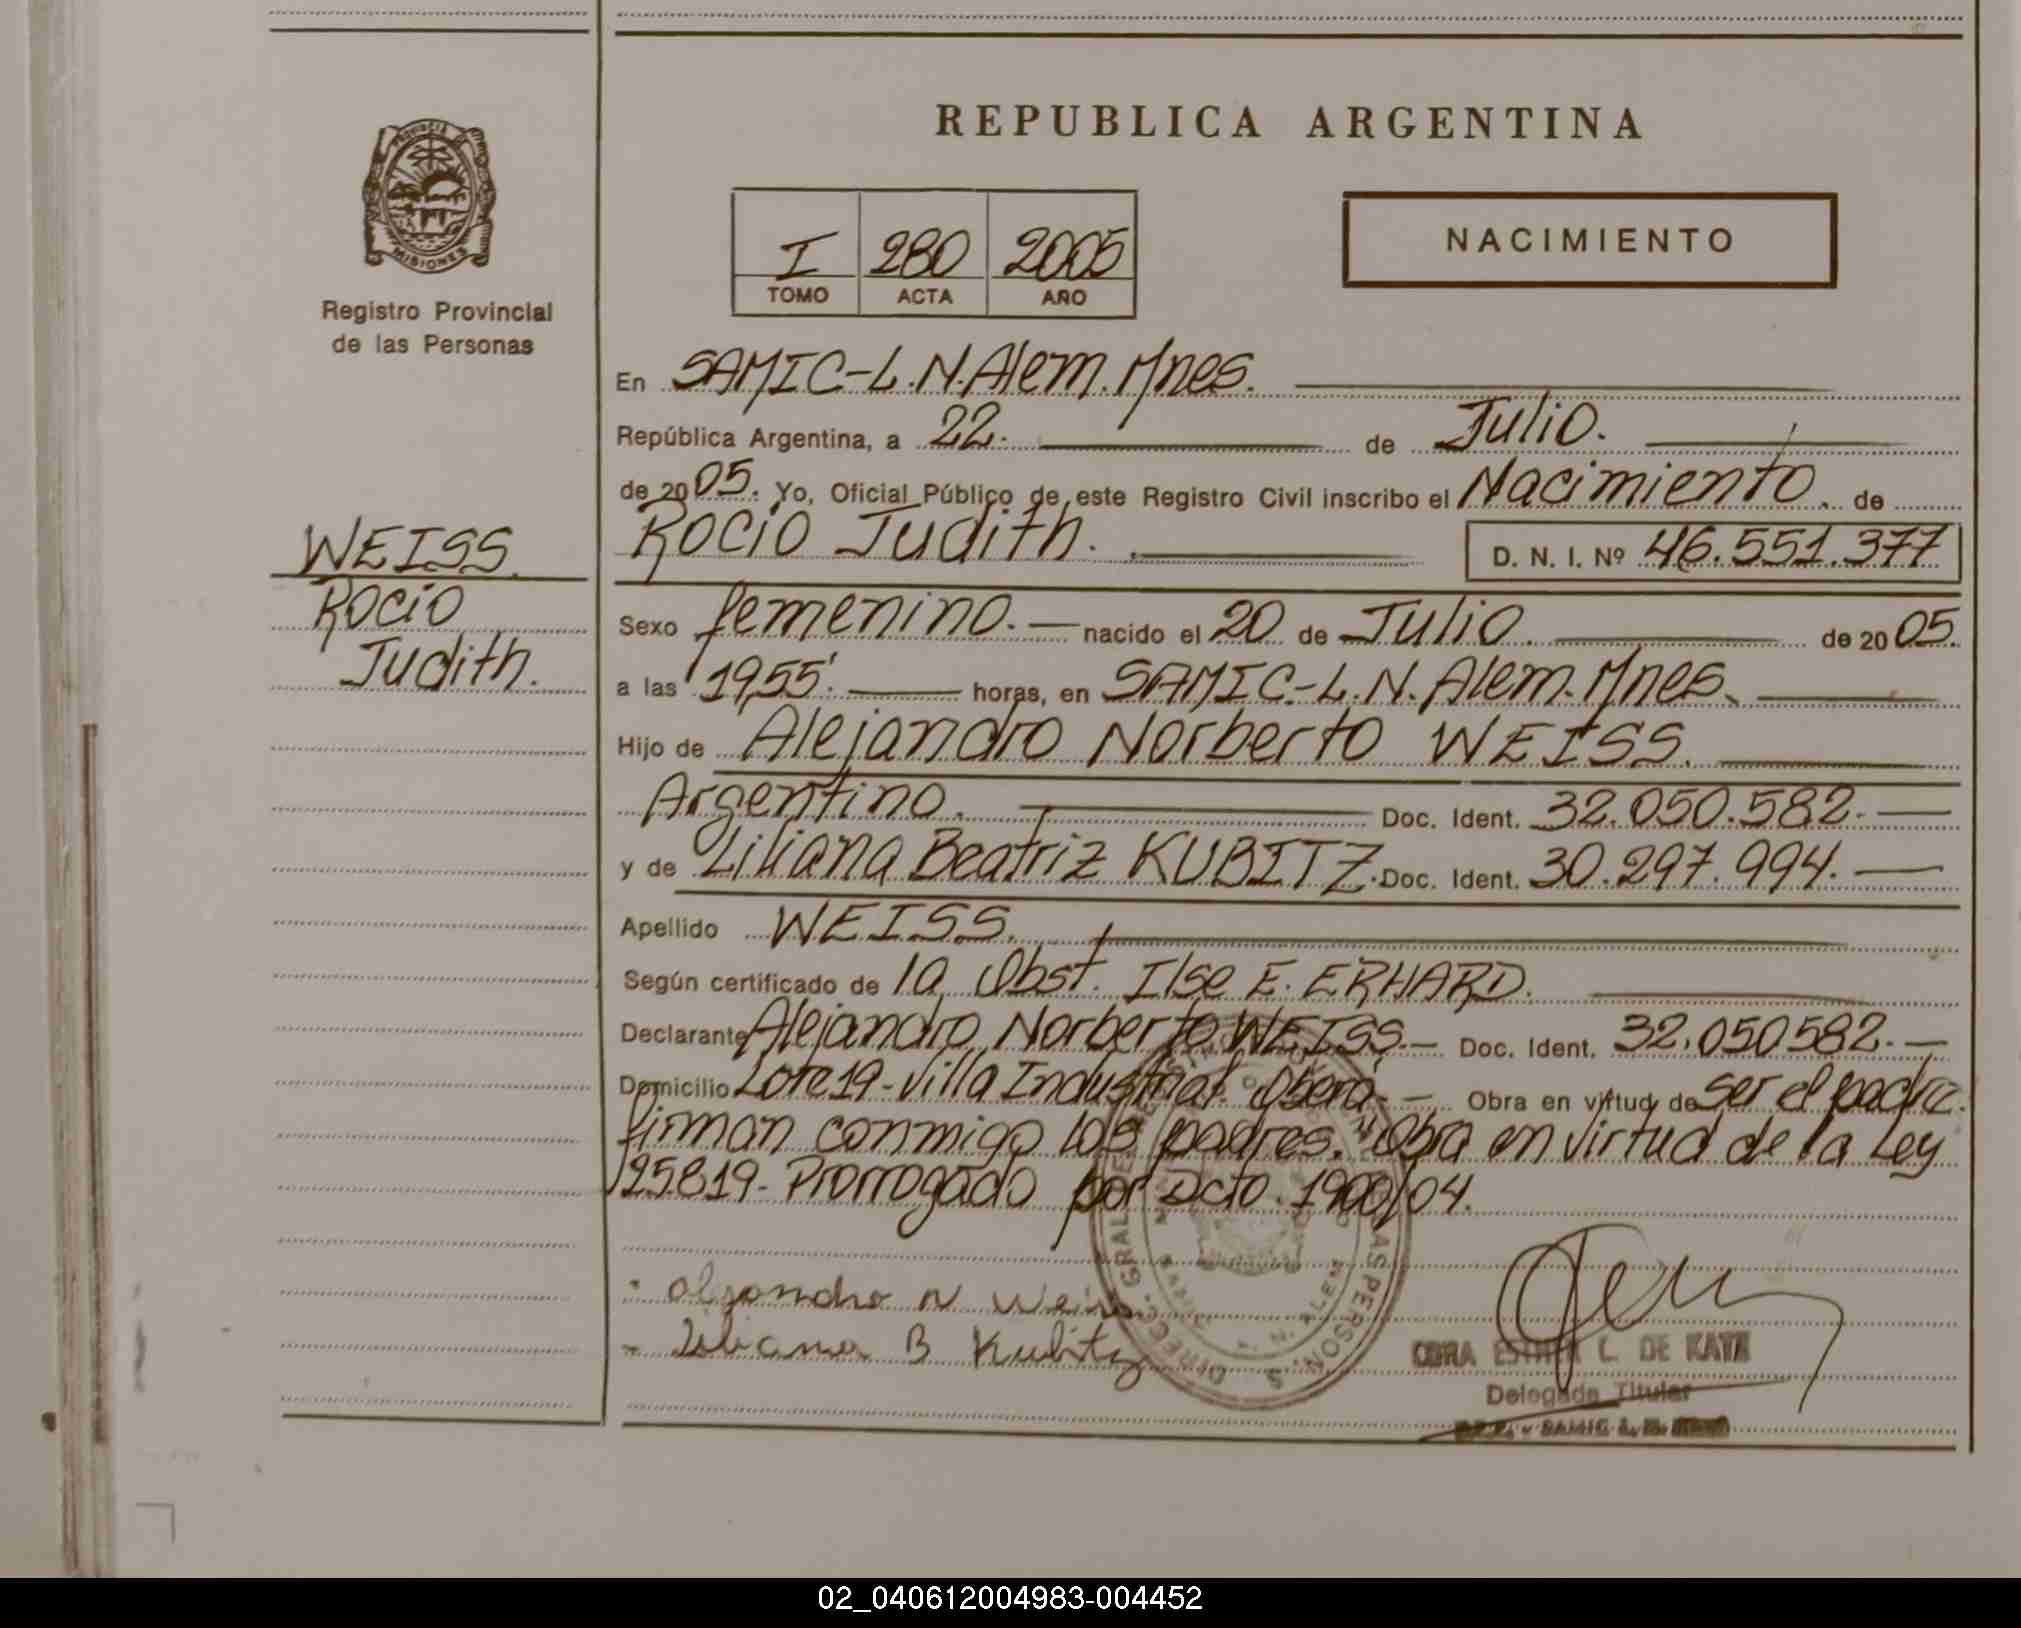 REPUBLICA ARGENTINA
PROVINCIA DE MISIONES
Registro Provincial
de las Personas
I 280 2005
TOMO ACTA AÑO
NACIMIENTO
En SAMIC-L.N.Alem.Mnes.
República Argentina, a 22. de Julio.
de 2005. Yo, Oficial Público de este Registro Civil inscribo el Nacimiento. de
Rocio Judith. D. N. I. Nº 46.551.377
WEISS.
Rocio
Judith.
Sexo femenino.- nacido el 20 de Julio. de 2005.
a las 19,55'. horas, en SAMIC-L.N.Alem.Mnes.
Hijo de Alejandro Norberto WEISS.
Argentino. Doc. Ident. 32.050.582.-
y de Liliana Beatriz KUBITZ. Doc. Ident. 30.297.994.-
Apellido WEISS.
Según certificado de la Obst. Ilse E. ERHARD.
Declarante Alejandro Norberto WEISS.- Doc. Ident. 32.050582.-
Domicilio Lote 19-Villa Industrial. Oberá.- Obra en virtud de ser el padre.
firman conmigo los padres. Obra en virtud de la Ley
25819- Prorrogado por Dcto. 1900/04.
Alejandro N Weiss
Liliana B Kubitz
L. DE
Delegada Titular
SAMIC
02_040612004983-004452